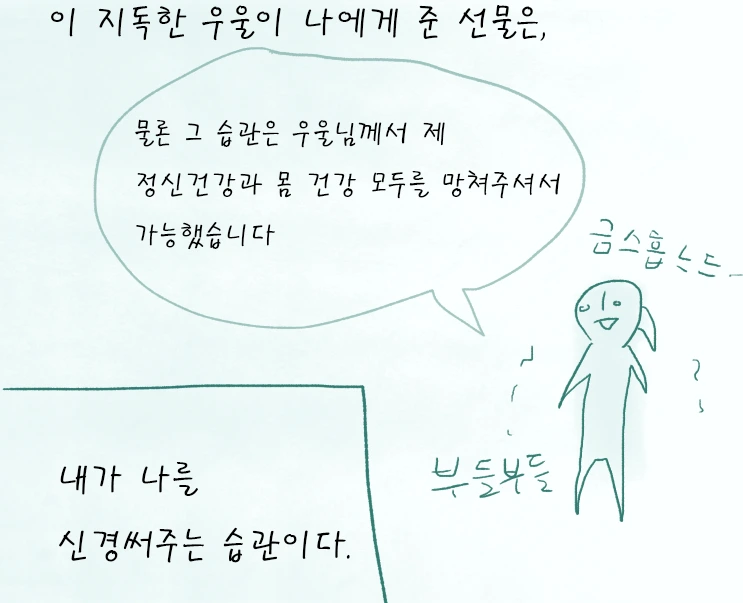 이 지독한 우울이 나에게 준 선물은,
물론 그 습관은 우울님께서 제
정신건강과 몸 건강 모두를 망쳐주셔서
가능했습니다
부들부들
내가 나를
신경써주는 습관이다.